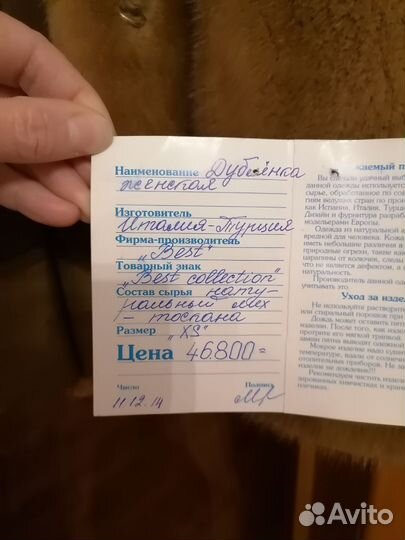 Наименование Дублёнка
женская
Изготовитель
Италия-Турция
Фирма-производитель
"Best"
Товарный знак
"Best collection"
Состав сырья нату-
ральный мех
- тоскана
Размер "XS"
Цена 46800=
Число Подпись
11.12.14
Уважаемый п
Вы сделали удачный выб
данной одежды используетс
сырье, обработанное по сов
гиям ведущих стран по прои
как Испания, Италия, Турци
Дизайн и фурнитура разраб
модельерами Европы.
Одежда из натуральной к
вредной для человека. Кожа
иметь небольшие различия в
природные огрехи, такие как
царапины от колючек, следы
что не является дефектом, а п
натуральность.
Производитель данной одеж
учитывать это.
Уход за издел
Не используйте растворител
или стиральный порошок при
Дождь может оставить пятн
изделии. После того, как изде
протрите его мягкой тряпкой.
замши пятна выводит одежной
Мокрое изделие надо сушит
температуре, вдали от солнечног
отопительных приборов. Не де
изделии не дождевик!!!
Рекомендуем чистить изделия
зированных химчистках и хранит
плечиках.
Avito